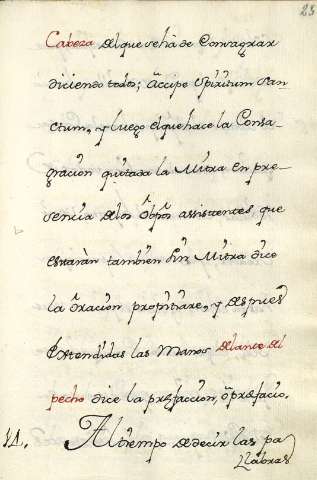 23
Cabeza del que se hà de Consagrar
diciendo todos; Accipe Spiritum San-
ctum, y luego el que hace la Consa-
gracion quitada la Mitra en pre-
sencia de los Obpos assistentes, que
estaràn tambien sin Mitra dice
la Oracion propitiare, y despues
extendidas las manos delante del
pecho dice la prefaccion, ò prefacio.
Al tiempo de decir las pa
llabras